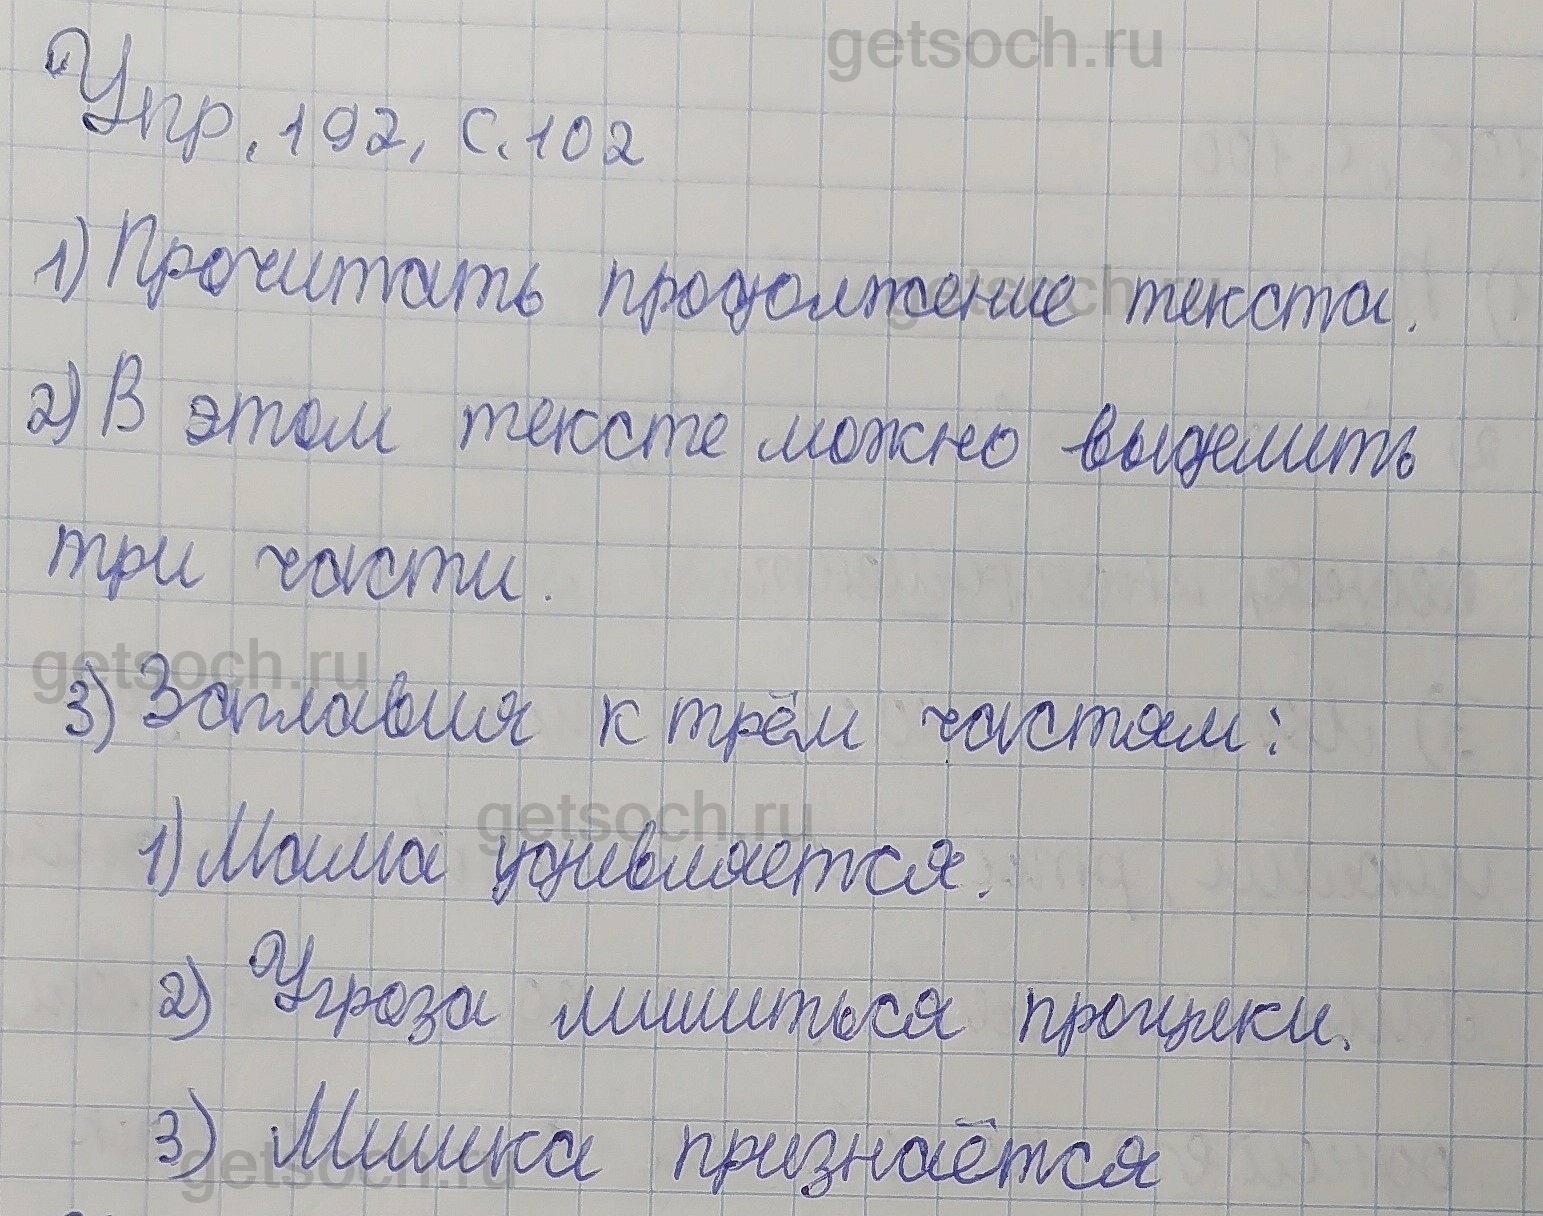 getsoch.ru
Упр. 192, с. 102
1) Прочитать продолжение текста.
getsoch.ru
2) В этом тексте можно выделить
три части.
getsoch.ru
3) Заглавия к трём частям:
getsoch.ru
1) Мама удивляется.
2) Угроза лишиться процики.
3) Мишка признаётся
getsoch.ru